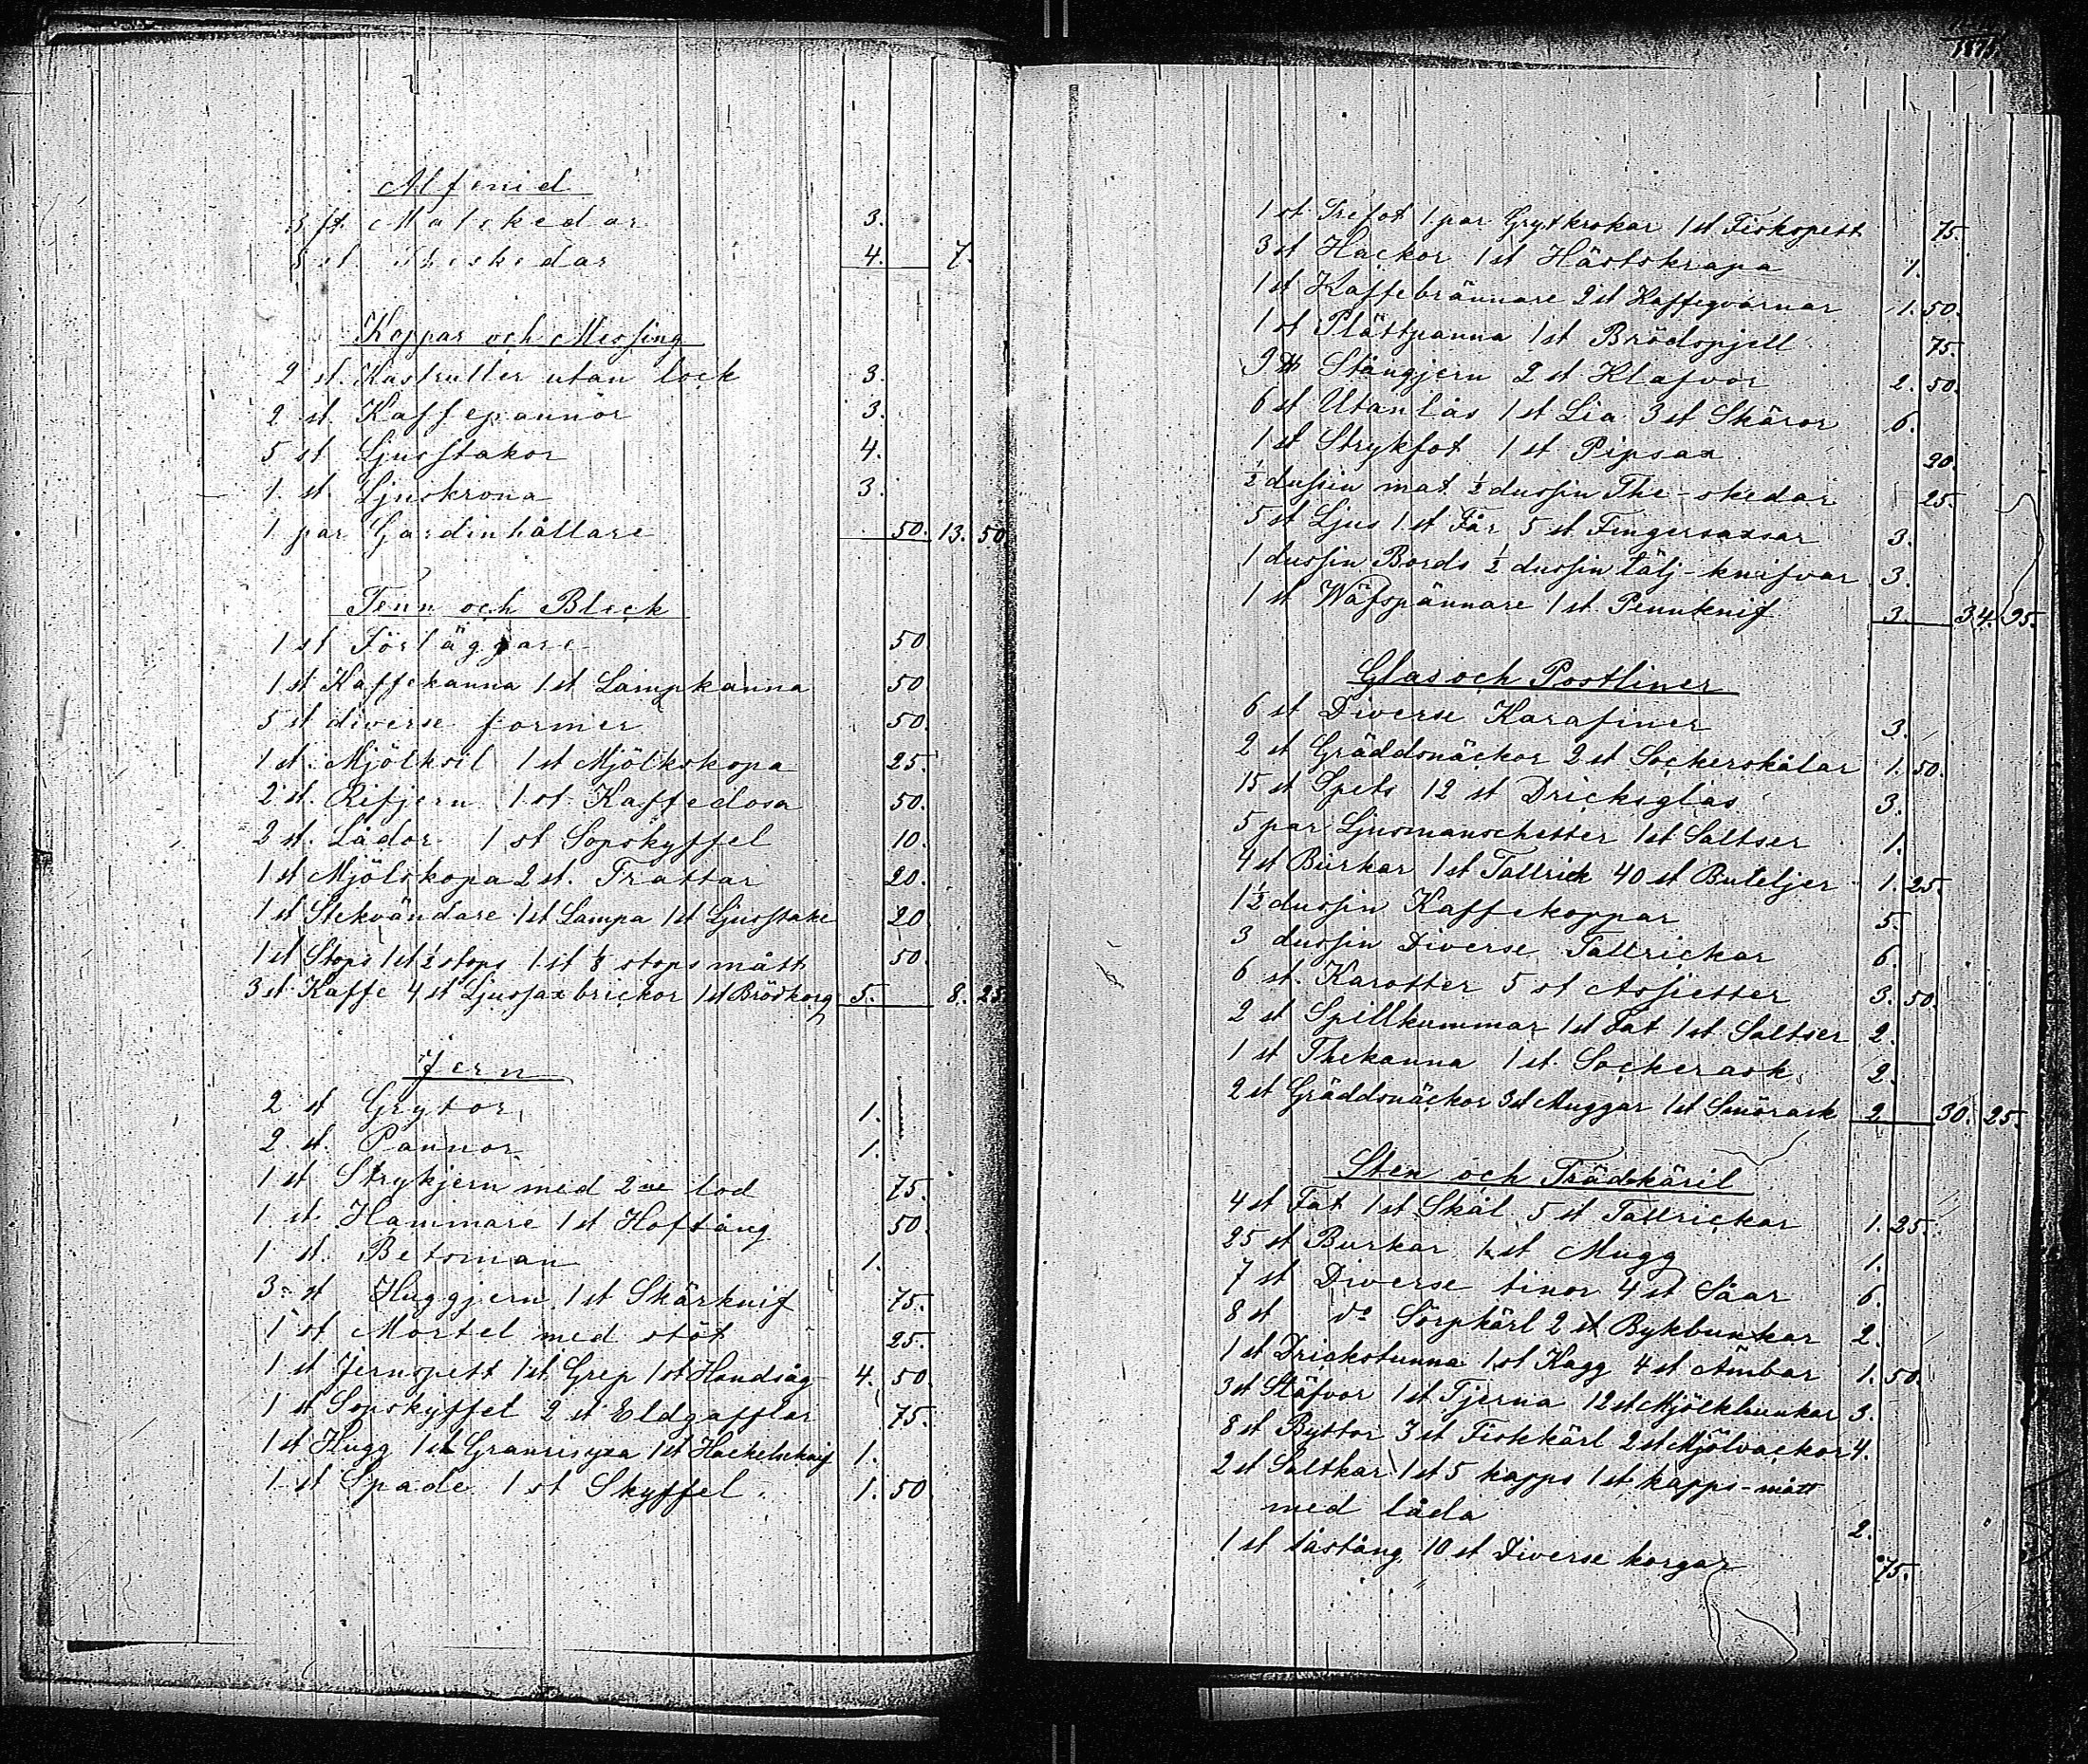 Alfenid
3 st. Matskedar 3.
8 st Theskedar 4. 7.
Koppar och Messing
2 st. Kastruller utan lock 3.
2 st. Kaffepannor 3.
5 st Ljusstakor 4.
1 st. Ljuskrona 3.
1 par Gardinhållare 50. 13. 50
Tenn och Bleck
1 st Förläggare 50
1 st Kaffekanna 1 st Lampkanna 50
5 st diverse former 50.
1 st. Mjölksil 1 st Mjölkskopa 25.
2 st. Rifjern 1 st Kaffedosa 50.
2 st. Lådor 1 st Sopskyffel 10.
1 st Mjölskopa 2 st. Trattar 20.
1 st Stekvändare 1 st Lampa 1 st Ljusstake 20
1 st Stops 1 st ½ stops 1 st ⅛ stops mått 50.
3 st Kaffe 4 st Ljussaxbrickor 1 st Brödkorg 5. 8. 25
Jern
2 st Grytor 1.
2 st. Pannor 1.
1 st Strykjern med 2ne lod 75.
1 st. Hammare 1 st Hoftång 50.
1 st. Betsman 1.
3 st Huggjern 1 st Skärknif 75.
1 st Mortel med stöt 25.
1 st Jernspett 1 st Grep 1 st Handsåg 4. 50.
1 st Sopskyffel 2 st Eldgafflar 75.
1 st Hugg 1 st Granrisyxa 1 st Hackelseknif 1.
1 st Spade 1 st Skyffel. 1. 50
1875
1 st Trefot 1 par Grytkrokar 1 st Fiskspett 75.
3 st Hackor 1 st Hästskrapa 1.
1 st Kaffebrännare 2 st Kaffeqvarnar 1. 50.
1 st Plättpanna 1 st Brödspjell 75.
9 ℔ Stångjern 2 st Klafvor 2. 50.
6 st Utanlås 1 st Lia 3 st Skäror 6.
1 st Strykfot 1 st Pipsax 20.
½ dussin mat ½ dussin The-skedar 25.
5 st Ljus 1 st Får 5 st Fingersaxar 3.
1 dussin Bords ½ dussin tälj-knifvar 3.
1 st Wäfspännare 1 st. Pennknif 3. 34. 95.
Glas och Postliner
6 st Diverse Karafiner 3.
2 st Gräddsnäckor 2 st Sockerskålar 1. 50.
15 st Spets 12 st Dricksglas 3.
5 par Ljusmanschetter 1 st Saltser 1.
4 st Burkar 1 st Tallrick 40 st Buteljer 1. 25.
1½ dussin Kaffekoppar 5.
3 dussin Diverse Tallrickar 6.
6 st. Karotter 5 st Assietter 3. 50.
2 st Spillkummar 1 st Fat 1 st Saltser 2.
1 st Thekanna 1 st Sockerask 2.
2 st Gräddsnäckor 3 st Muggar 1 st Smörask 2 30. 25.
Sten och Trädkäril
4 st Fat 1 st Skål 5 st Tallrickar 1. 25.
25 st Burkar 1 st Mugg 1.
7 st Diverse tinor 4 st Såar 6.
8 st do Sörpkärl 2 st Bykbunkar 2.
1 st Drickstunna 1 st Kagg 4 st Ämbar 1. 50.
3 st Stäfvor 1 st Tjerna 12 st Mjölkbunkar 3.
8 st Byttor 3 st Fiskkärl 2 st Mjölvackor 4.
2 st Saltkar 1 st 5 kapps 1 st kapps-mått
med låda 2.
1 st såstång 10 st Diverse korgar 75.